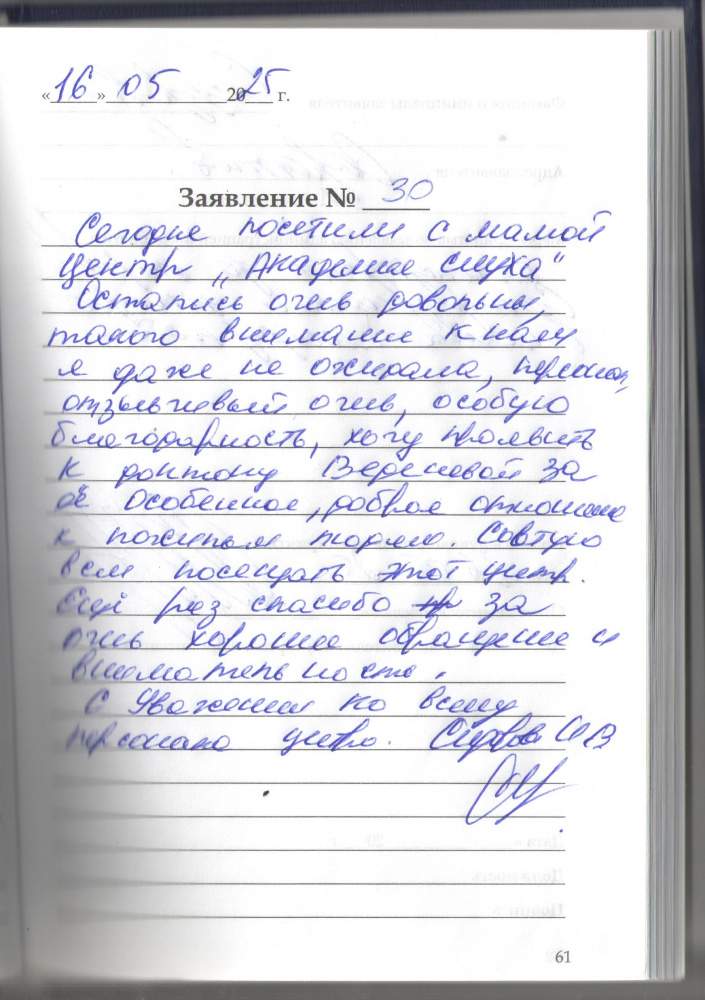 «16» 05 2025 г.
Заявление № 30
Сегодня посетили с мамой
центр „Академие слуха"
Остались очень довольны,
такого внимания к нам
я даже не ожидала, персонал,
отзывчивый очень, особую
благодарность, хочу проявить
к доктору за
её особенное, доброе отношение
к пожилым людям. Советую
всем посещать этот центр.
Ещё раз спасибо за
очень хорошее обращение и
внимательность.
С Уважением ко всему
персоналу центра. И В
61